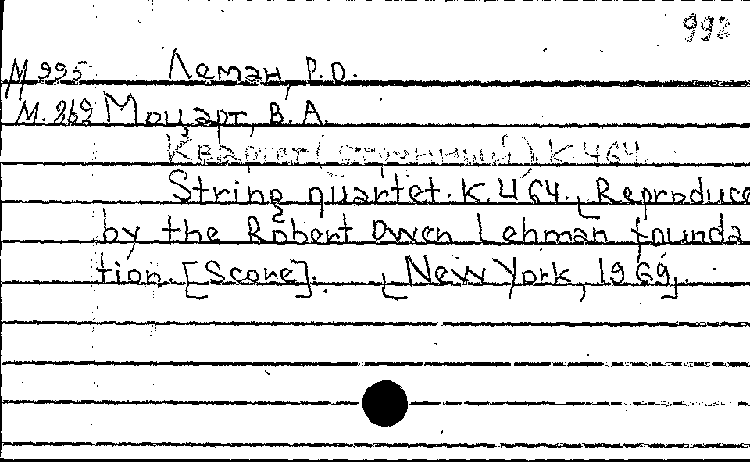 992
М 995 Леман, Р.О.
М. 262 Моцарт, В. А.
Квартет (струнный) К 464.
String quartet. K. 464. [Reproduce
by the Robert Owen Lehman founda
tion. [Score]. [New York, 1969].